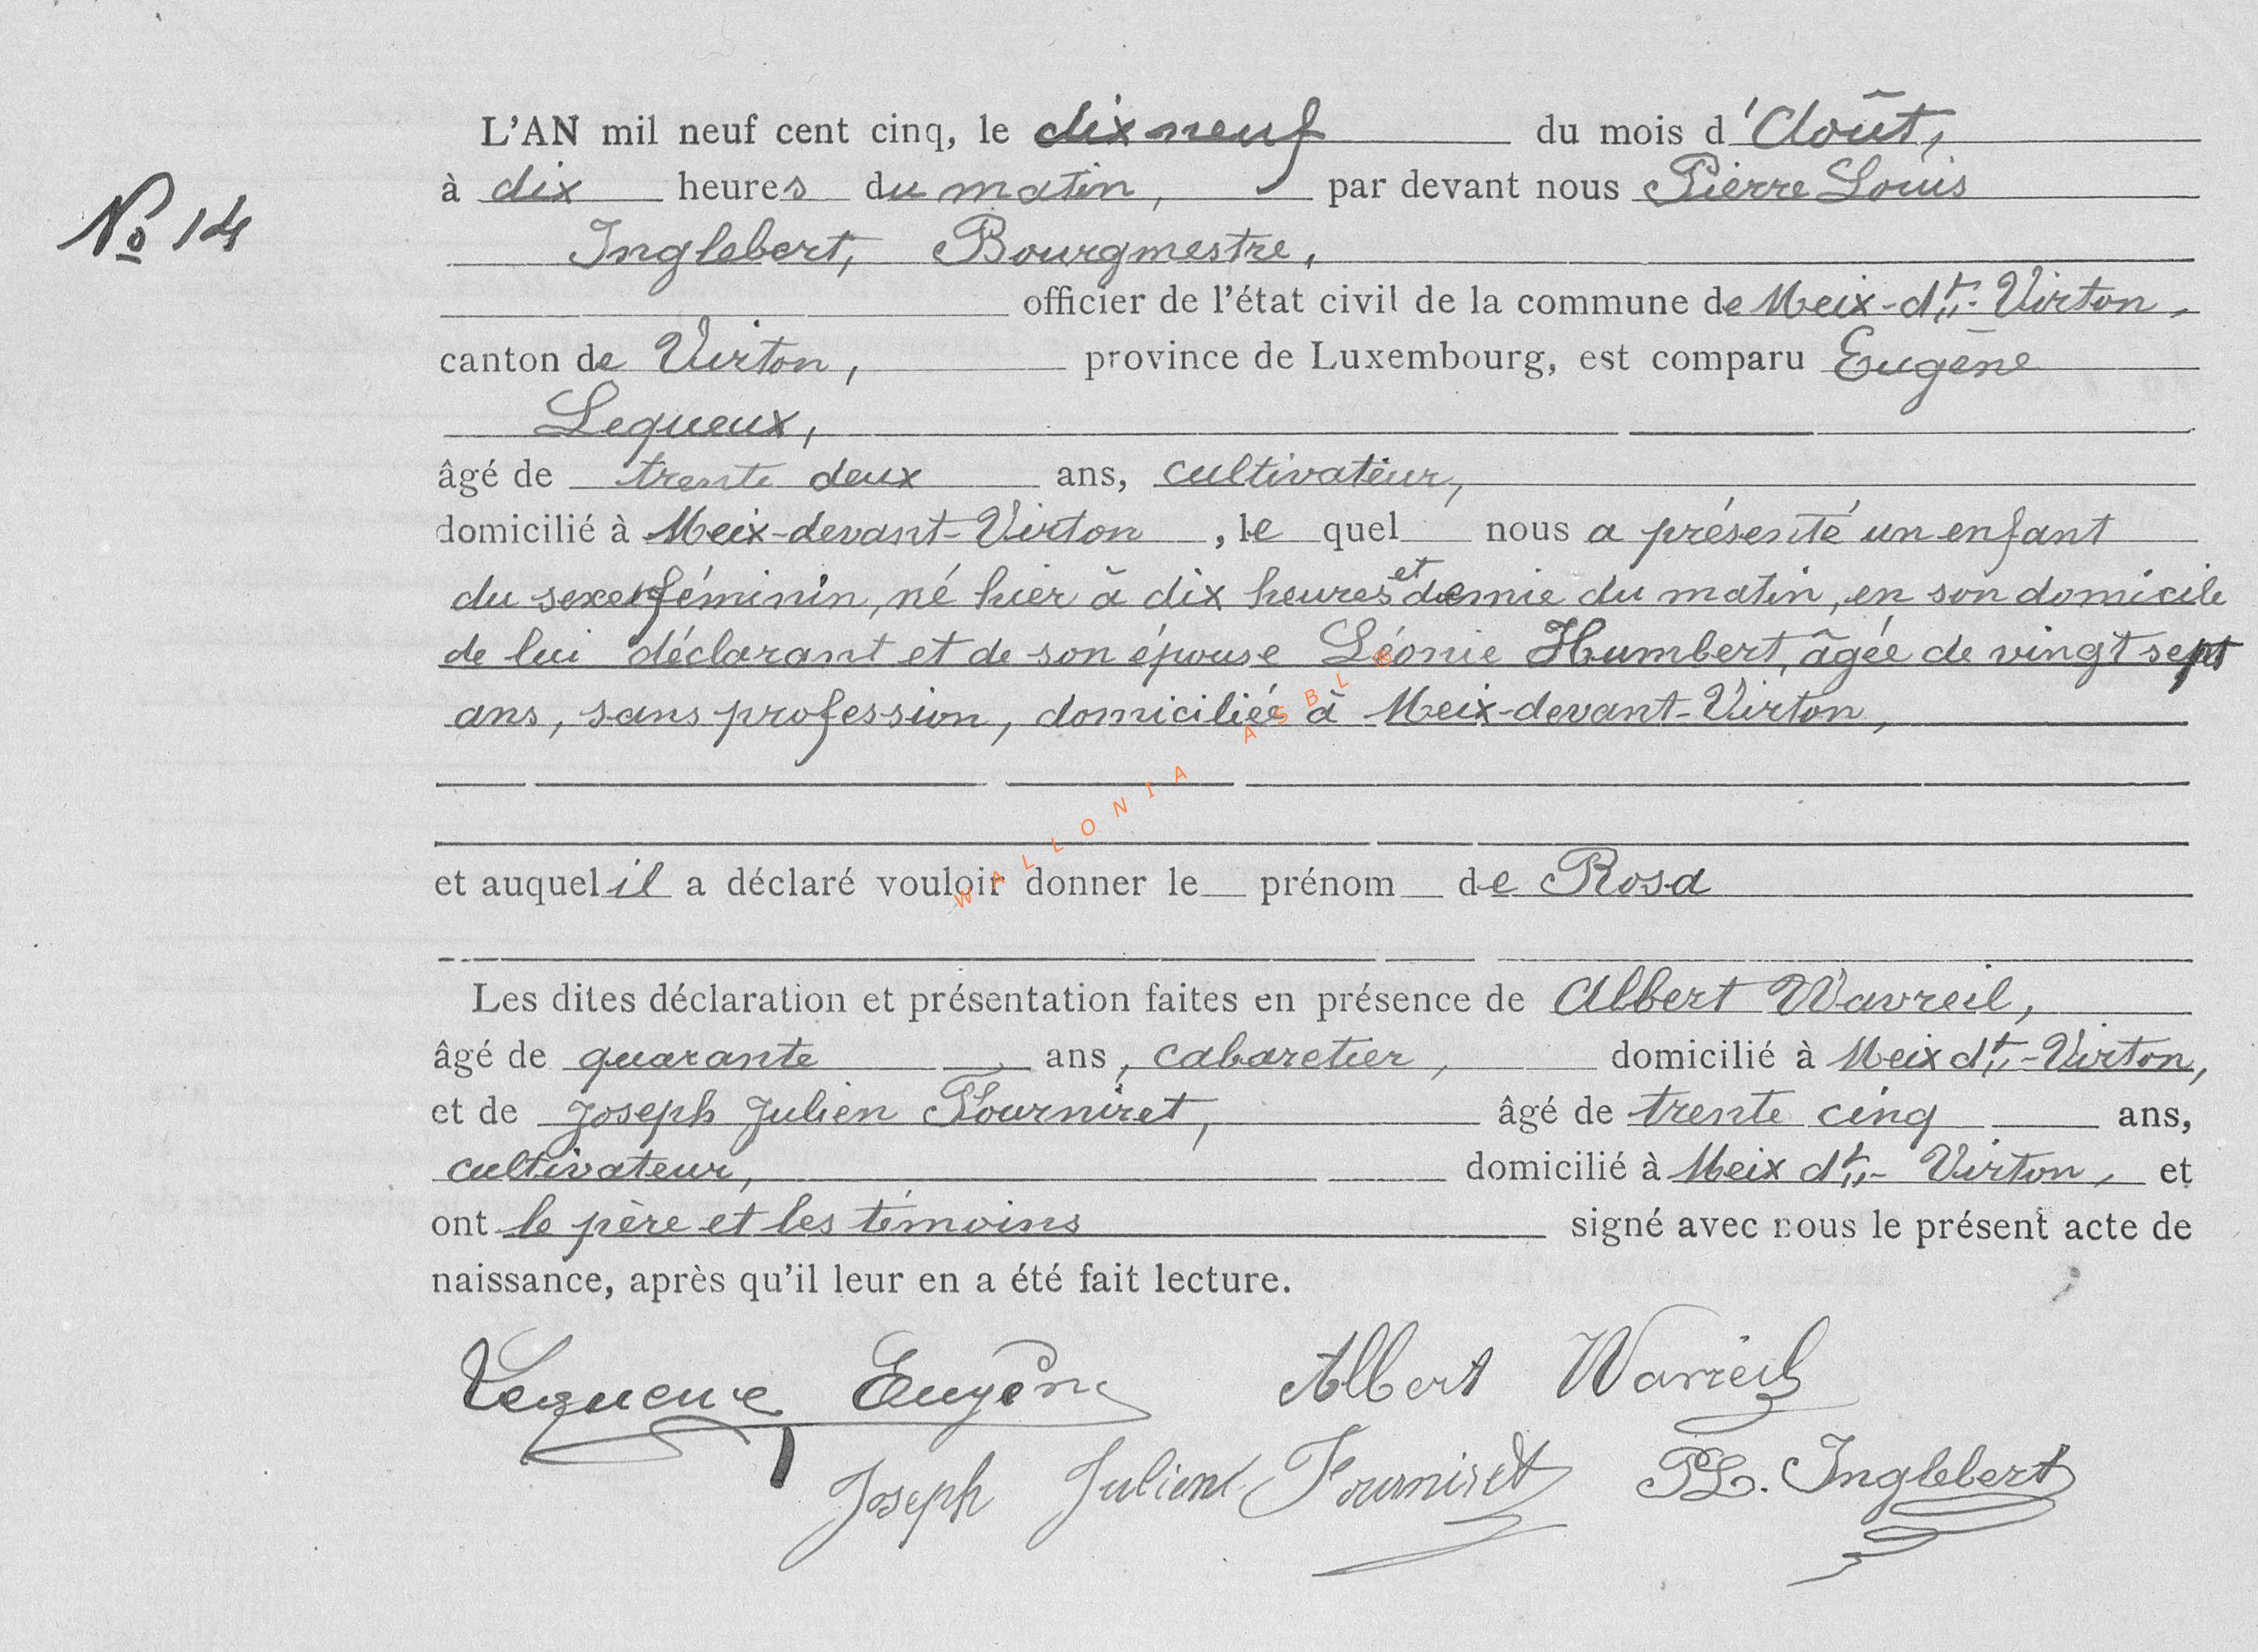 L'AN mil neuf cent cinq, le dix neuf du mois d'Août,
à dix heures du matin, par devant nous Pierre Louis
No 14
Inglebert, Bourgmestre,
officier de l'état civil de la commune de Meix-dt-Virton,
canton de Virton, province de Luxembourg, est comparu Eugène
Lequeux,
âgé de trente deux ans, cultivateur,
domicilié à Meix-devant-Virton, le quel nous a présenté un enfant
du sexe féminin, né hier à dix heures et demie du matin, en son domicile
de lui déclarant et de son épouse Léonie Humbert, âgée de vingt sept
ans, sans profession, domiciliée à Meix-devant-Virton,
WALLONIA ASBL ©
et auquel il a déclaré vouloir donner le prénom de Rosa
Les dites déclaration et présentation faites en présence de Albert Wavreil,
âgé de quarante ans, cabaretier, domicilié à Meix dt-Virton,
et de Joseph Julien Fourniret, âgé de trente cinq ans,
cultivateur, domicilié à Meix dt-Virton, et
ont le père et les témoins signé avec nous le présent acte de
naissance, après qu'il leur en a été fait lecture.
Lequeux Eugène Albert Wavreil
Joseph Julien Fourniret PL. Inglebert